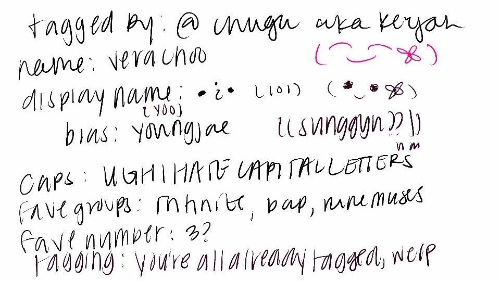 tagged by: @ chugu aka keryah
name: verachoo (‿‿✿)
display name: • i • (101) (•‿•✿)
[yoo]
bias: youngjae ((sunggyu??))
nm
caps: UGH I HATE CAPITAL LETTERS
fave groups: infinite, bap, nine muses
fave number: 3?
tagging: you're all already tagged, welp